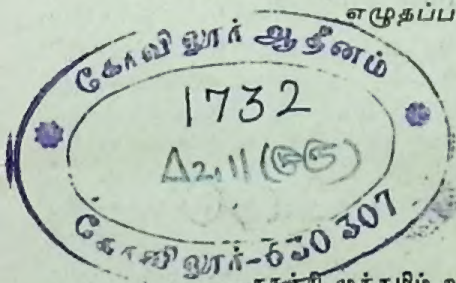 எழுதப்ப
கோவிலூர் ஆதீனம்
1732
Δ2,11(௫௫)
கோவிலூர்-630 307